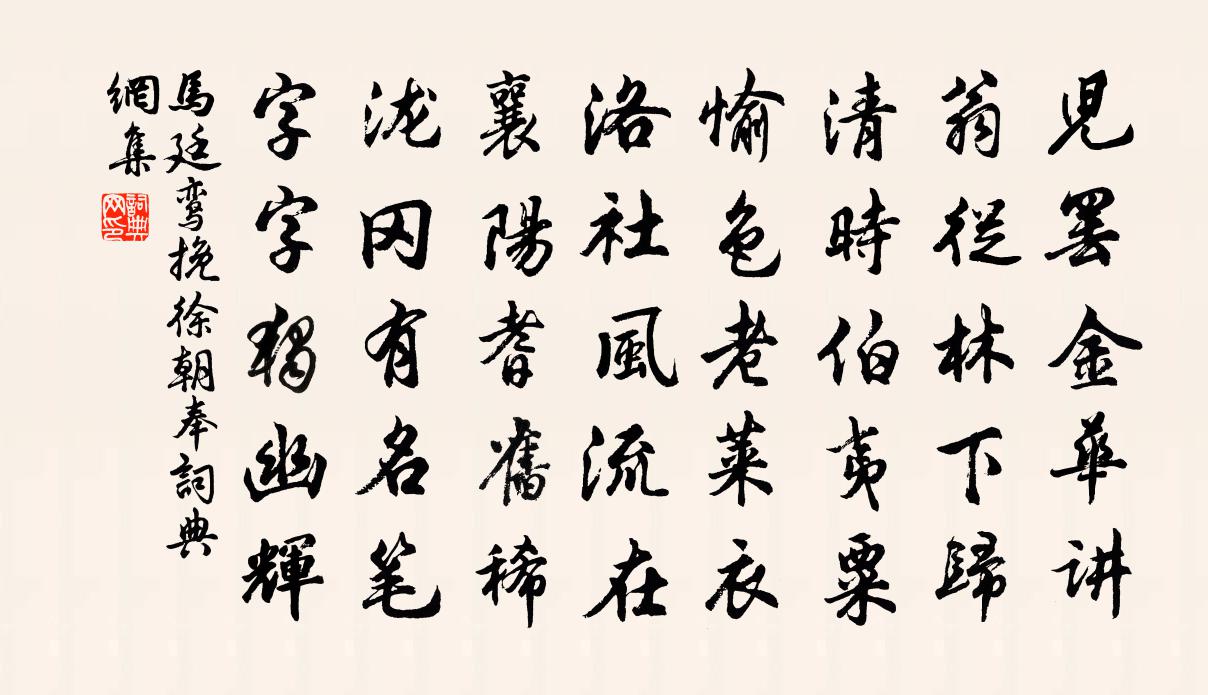 児罢金華讲
翁從林下歸
清時伯夷粟
愉色老萊衣
洛社風流在
襄陽耆舊稀
泷冈有名笔
字字獨幽輝
馬廷鸾挽徐朝奉詞典
網集
詞典
网印